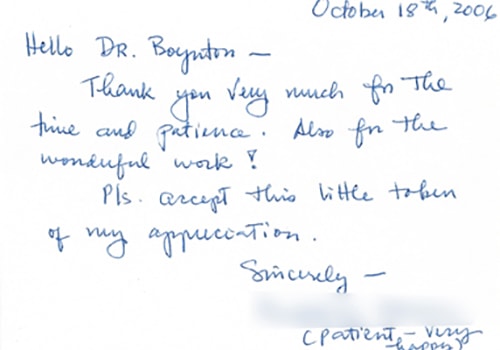 October 18th, 2006
Hello DR. Boynton —
Thank you very much for the
time and patience. Also for the
wonderful work!
Pls. accept this little token
of my appreciation.
Sincerely —
(patient – very
happy)